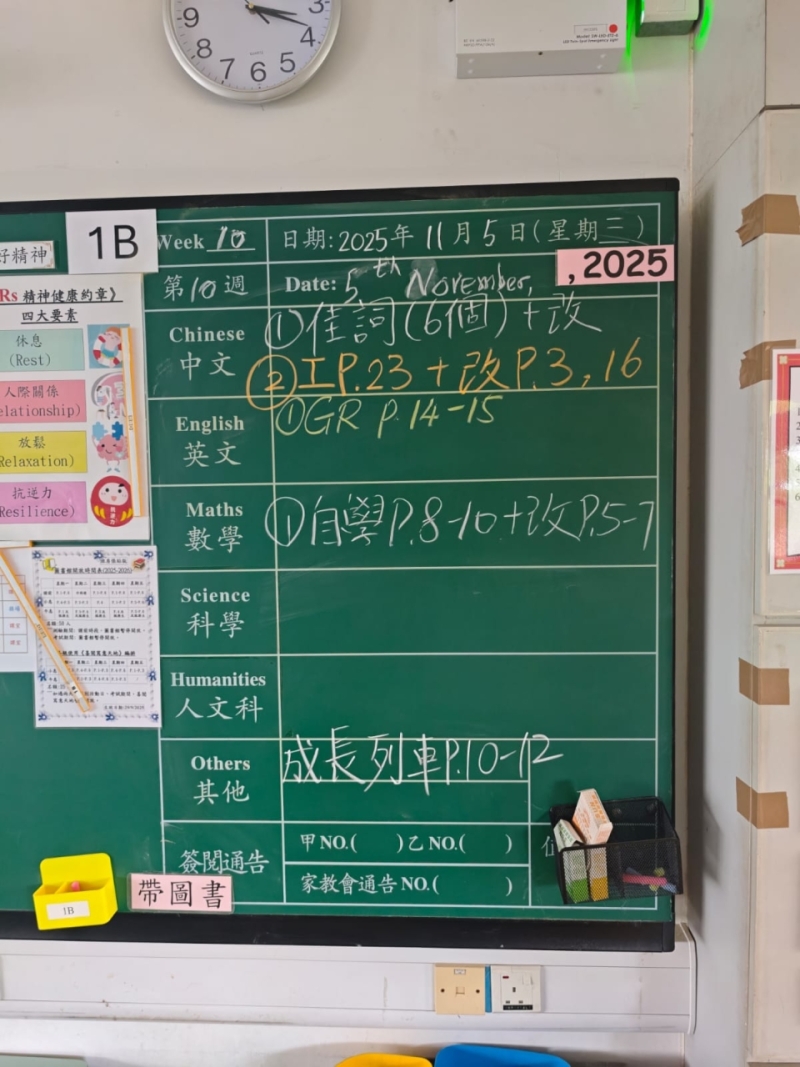 3
4
5
6
7
8
9
QUARTZ
好精神
1B
Rs 精神健康約章》
四大要素
休息
(Rest)
人際關係
elationship)
放鬆
Relaxation)
抗逆力
Resilience)
Week 10
日期: 2025年 11月 5日(星期三)
第10週
Date: 5th November,
,2025
Chinese
中文
①佳詞(6個)+改
②工P.23+改P.3,16
English
英文
①GR P.14-15
Maths
數學
①自學P.8-10+改P.5-7
Science
科學
Humanities
人文科
Others
其他
成長列車P.10-12
簽閱通告
甲NO.( )乙NO.( )
家教會通告NO.( )
1B
帶圖書